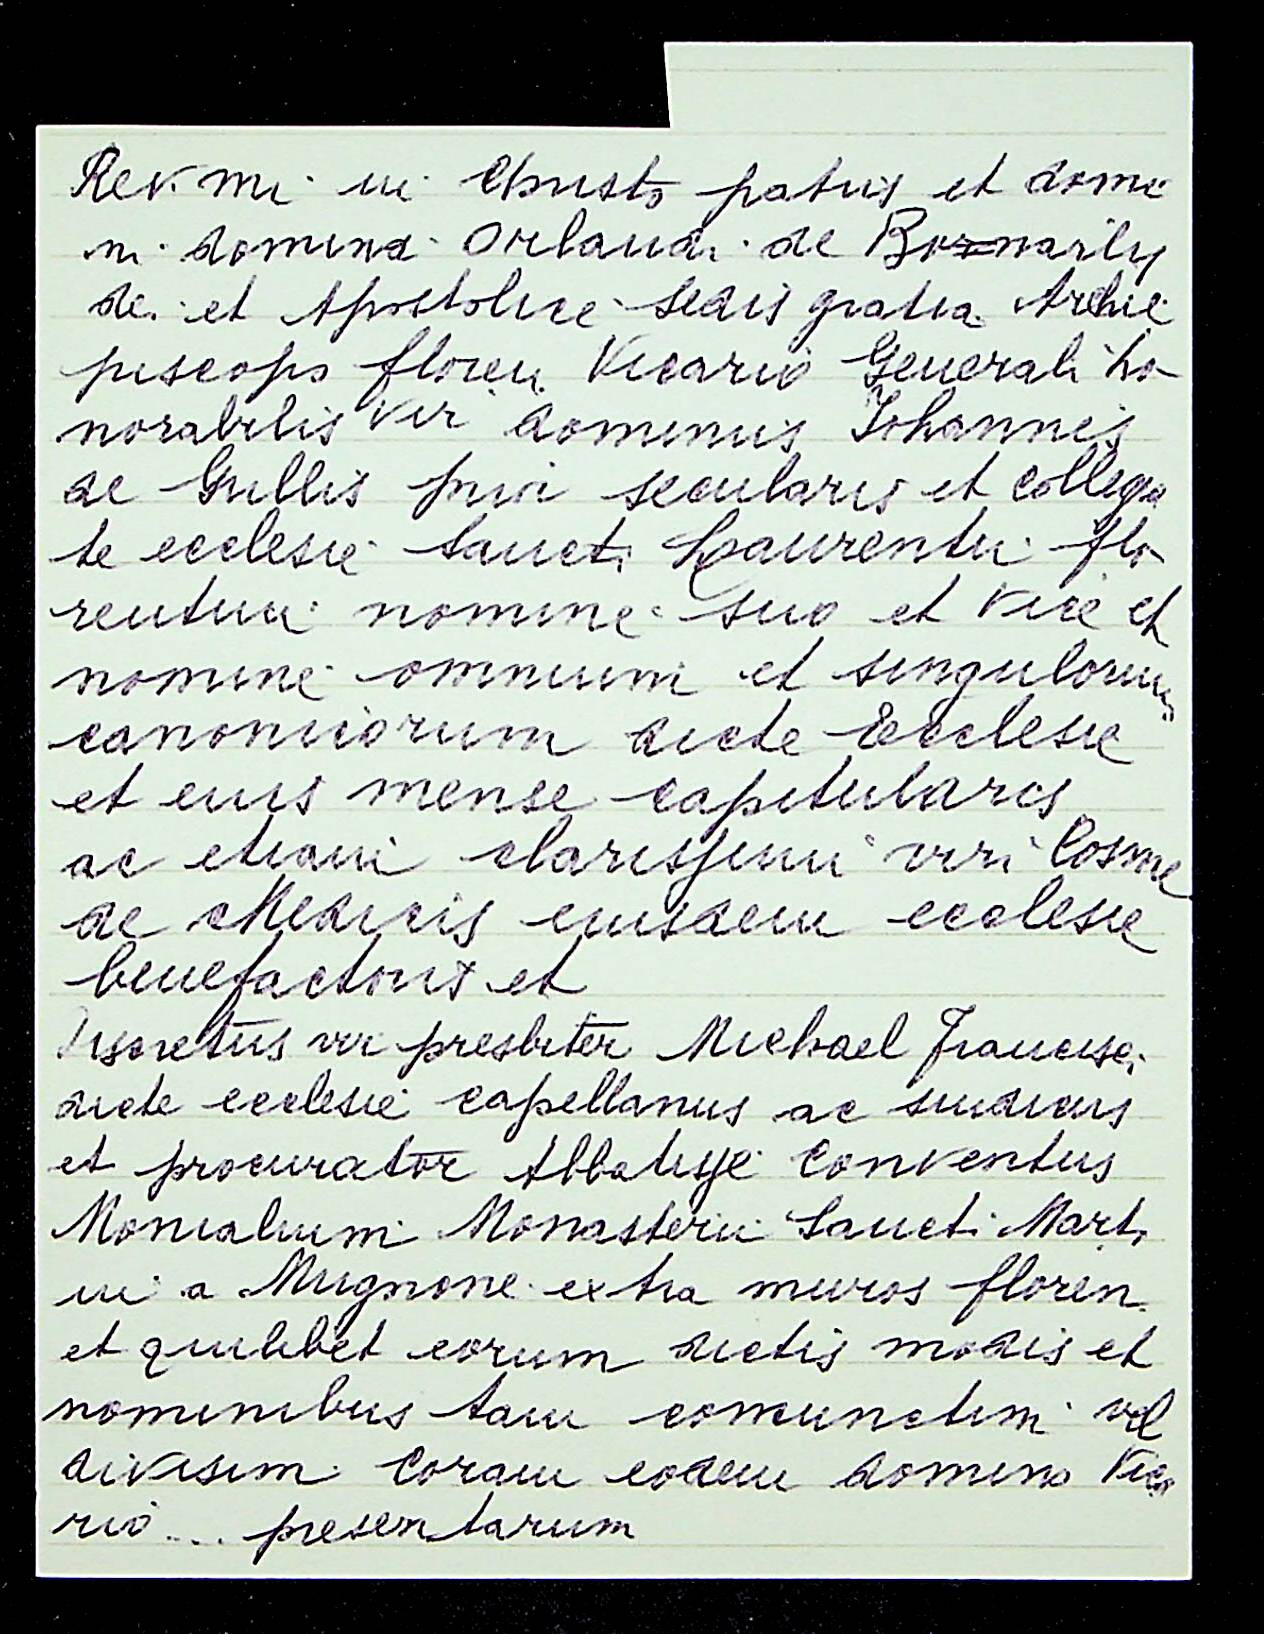 Rev. mi. in Christo patris et domi
ni domini Orlandi de Bonnarlis
dei et Apostolice sedis gratia Archie
piscopo floren. Vicario Generali ho-
norabilis vir dominus Johannis
de Gullis priori secularis et collegia
te ecclesie Sancti Laurentii flo-
rentini nomine suo et vice et
nomine omnium et singulorum
canonicorum dicte Ecclesie
et eius mense capitularis
ac etiam clarissimi viri Cosme
de Medicis eiusdem ecclesie
benefactoris et
Discretus vir presbiter Michael Francisci
dicte ecclesie capellanus ac sindicus
et procurator Abbatisse Conventus
Monialium Monasterii Sancti Marti
ni a Mugnone extra muros floren.
et quilibet eorum dictis modis et
nominibus tam coniunctim vel
divisim coram eodem domino Vica
rio ... presentarum